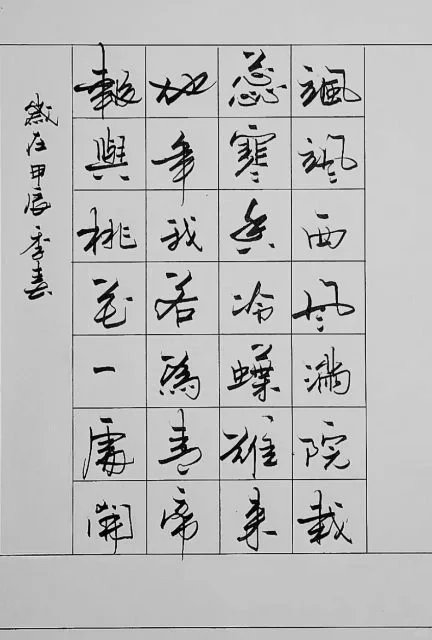 颯颯西風滿院栽
蕊寒香冷蝶難來
他年我若為青帝
報與桃花一處開
歲在甲辰季春